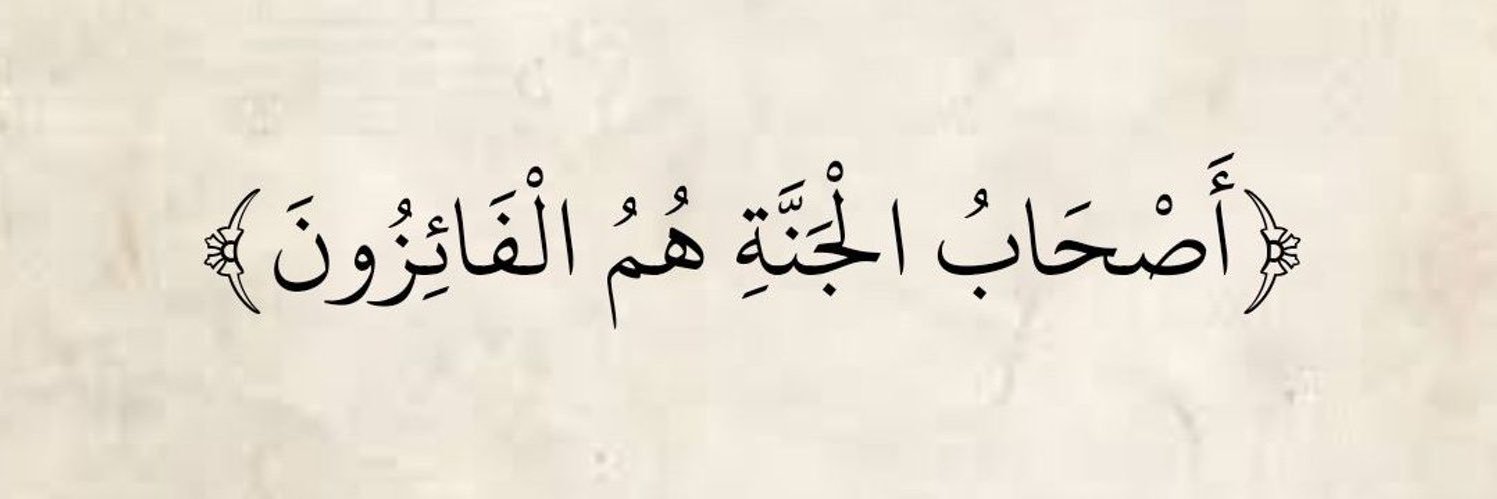 ﴿أَصْحَابُ الْجَنَّةِ هُمُ الْفَائِزُونَ﴾